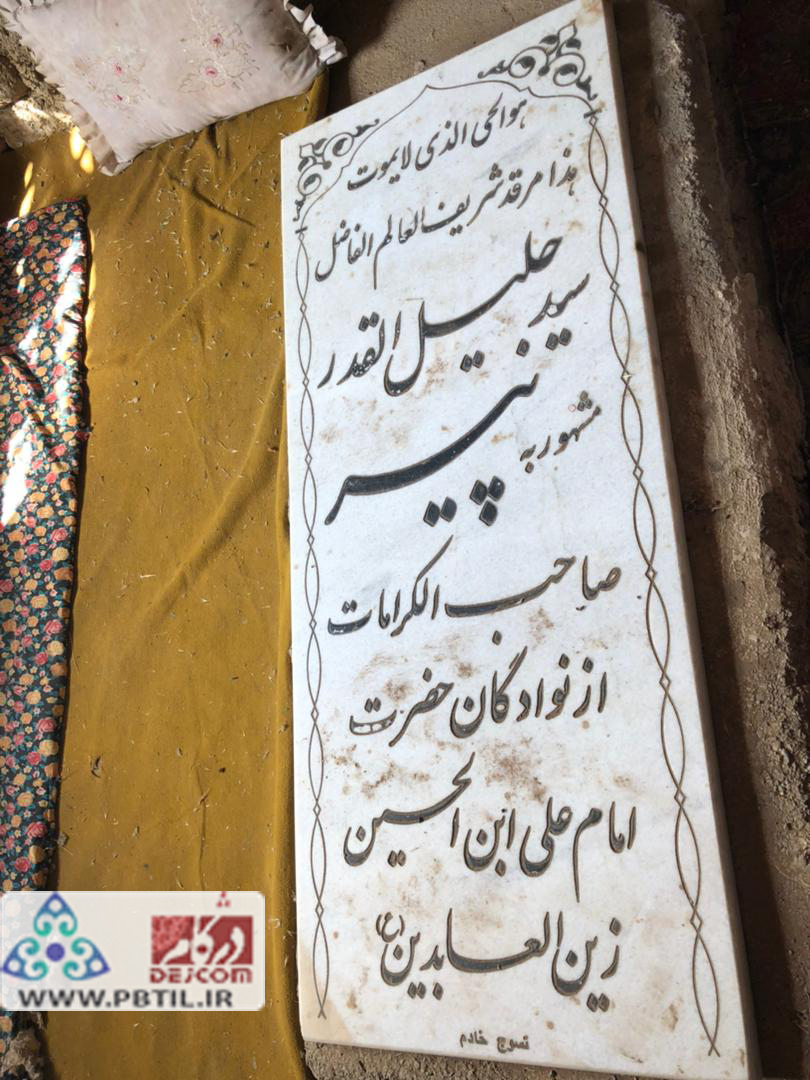 هوالحی الذی لایموت
هذا مرقد شریف العالم الفاضل
سید جلیل القدر
مشهور به پیر
صاحب الکرامات
از نوادگان حضرت
امام علی ابن الحسین
زین العابدین (ع)
تسوج خادم
دژکام
DEJCOM
WWW.PBTIL.IR